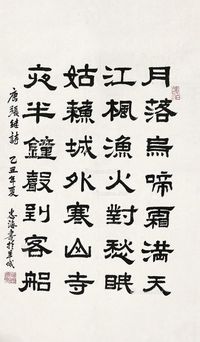 月落烏啼霜滿天
江楓漁火對愁眠
姑蘓城外寒山寺
夜半鐘聲到客船
唐張继詩 乙丑年夏 書於羊城